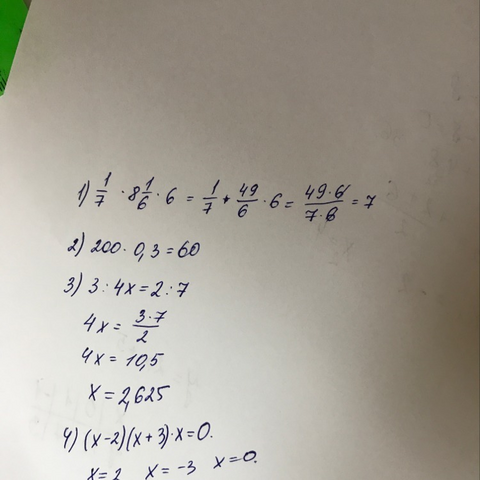 1) 1/7 · 8 1/6 · 6 = 1/7 + 49/6 · 6 = 49·6/7·6 = 7
2) 200 · 0,3 = 60
3) 3 : 4x = 2 : 7
4x = 3·7/2
4x = 10,5
x = 2,625
4) (x-2)(x+3)·x=0.
x=2 x=-3 x=0.